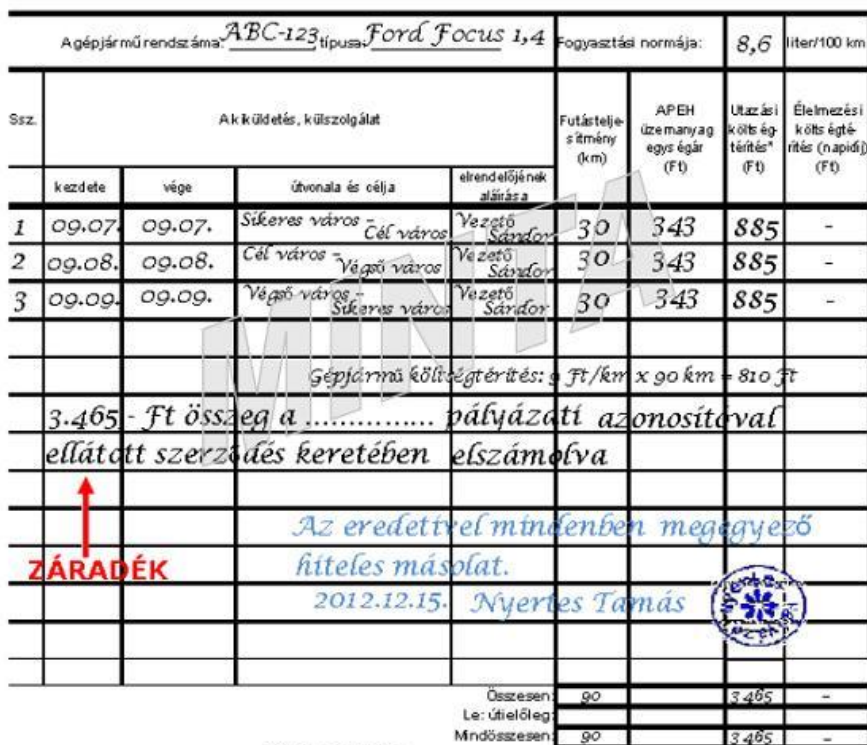 A gépjármű rendszáma: ABC-123 típusa: Ford Focus 1,4 Fogyasztási normája: 8,6 liter/100 km
Ssz. A kiküldetés, külszolgálat Futástelje-sítmény (km) APEH üzemanyag egységár (Ft) Utazási költség-térítés* (Ft) Élelmezési költségté-rítés (napidíj) (Ft)
kezdete vége útvonala és célja elrendelőjének aláírása
1 09.07. 09.07. Sikeres város - Cél város Vezető Sándor 30 343 885 -
2 09.08. 09.08. Cél város - Végső város Vezető Sándor 30 343 885 -
3 09.09. 09.09. Végső város - Sikeres város Vezető Sándor 30 343 885 -
MINTA
Gépjármű költségtérítés: 9 Ft/km x 90 km = 810 Ft
3.465,- Ft összeg a .............. pályázati azonosítóval
ellátott szerződés keretében elszámolva
ZÁRADÉK
Az eredetivel mindenben megegyező
hiteles másolat.
2012.12.15. Nyertes Tamás
Összesen: 90 3465 -
Le: útielőleg:
Mindösszesen: 90 3465 -